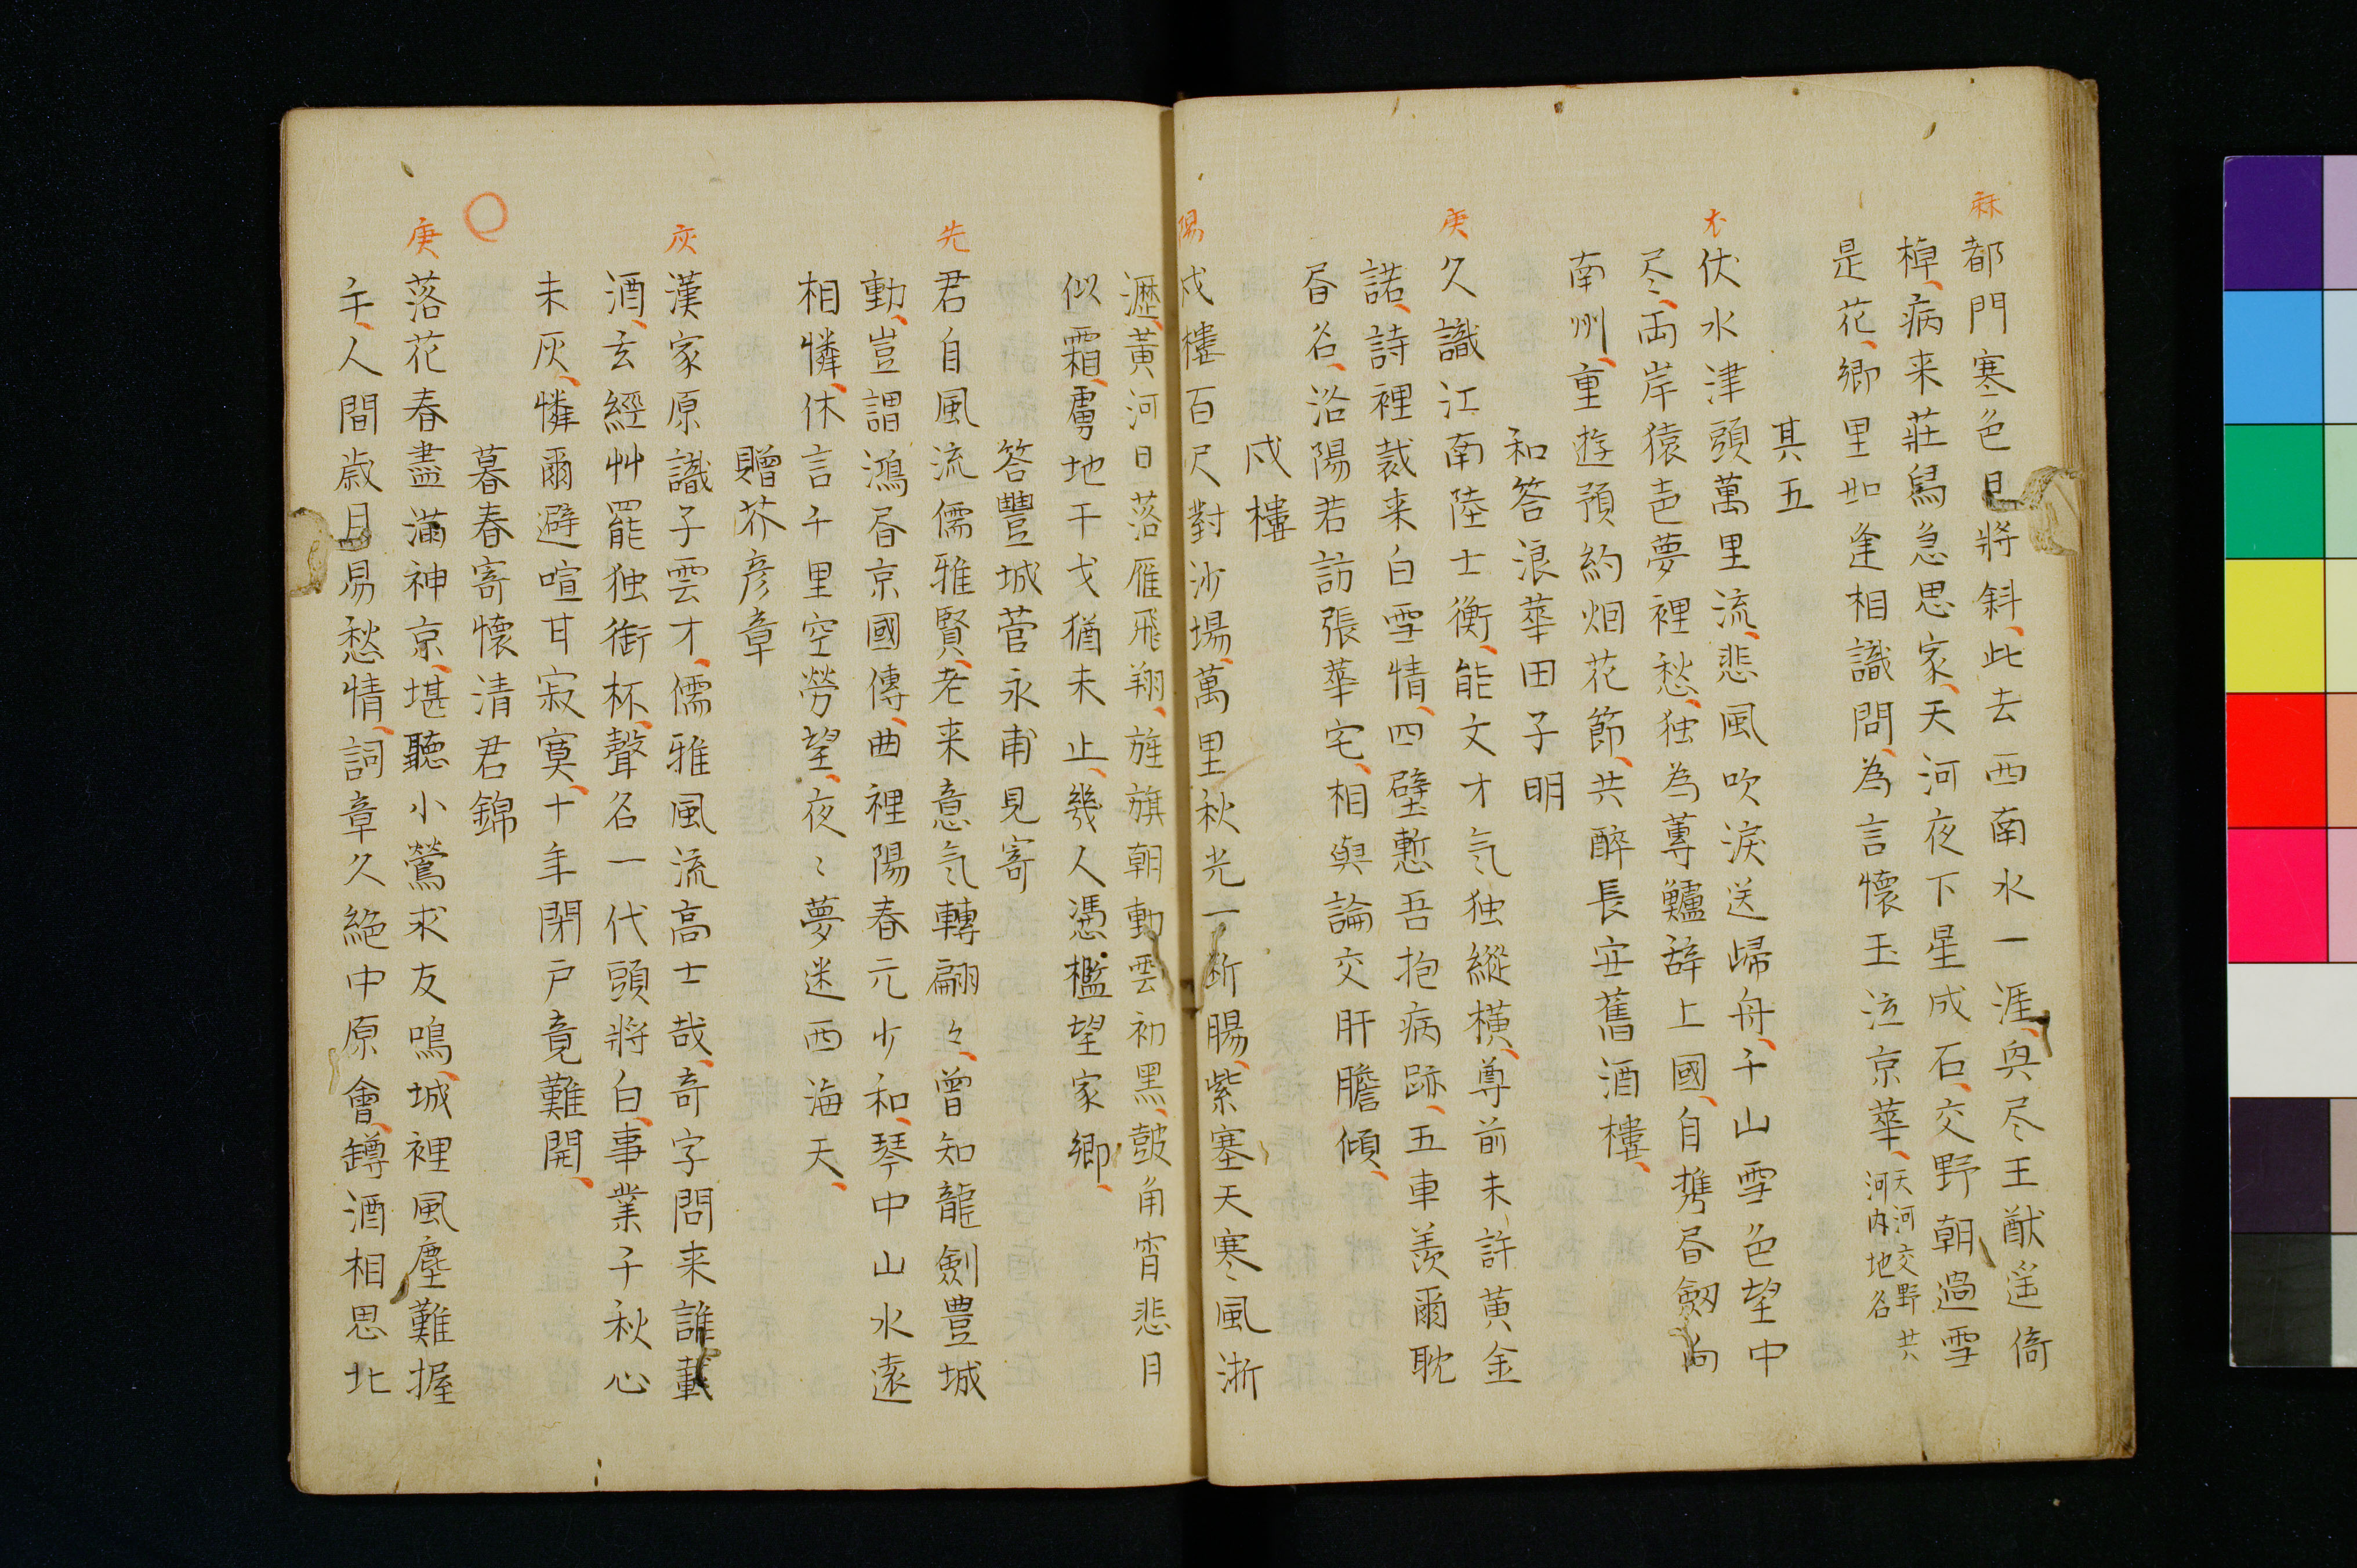 麻
都門寒色日將斜、此去西南水一涯、興尽王猷遥倚
棹、病来莊舄急思家、天河夜下星成石、交野朝過雪
是花、鄉里如逢相識問、為言懷玉泣京華、天河交野共河内地名
其五
尤
伏水津頭萬里流、悲風吹淚送歸舟、千山雪色望中
尽、両岸猿声夢裡愁、独為蓴鱸辞上國、自携昏劔向
南州、重遊預約烟花節、共醉長安舊酒樓、
和答浪華田子明
庚
久識江南陸士衡、能文才気独縱橫、尊前未許黄金
諾、詩裡裁来白雪情、四壁慙吾抱病跡、五車羨爾耽
昏名、洛陽若訪張華宅、相與論交肝膽傾、
戍樓
陽
戍樓百尺對沙場、萬里秋光一断腸、紫塞天寒風淅
瀝、黄河日落雁飛翔、旌旗朝動雲初黒、皷角宵悲月
似霜、虜地干戈猶未止、幾人憑檻望家鄉、
答豐城菅永甫見寄
先
君自風流儒雅賢、老来意気轉翩々、曾知龍劍豊城
動、豈謂鴻昏京國傳、曲裡陽春元少和、琴中山水遠
相憐、休言千里空勞望、夜〻夢迷西海天、
贈芥彦章
灰
漢家原識子雲才、儒雅風流高士哉、奇字問来誰載
酒、玄經艸罷独銜杯、聲名一代頭將白、事業千秋心
未灰、憐爾避喧甘寂寞、十年閉戸竟難開、
暮春寄懷清君錦
庚
落花春盡滿神京、堪聽小鶯求友鳴、城裡風塵難握
手、人間歳月易愁情、詞章久絶中原會、罇酒相思北